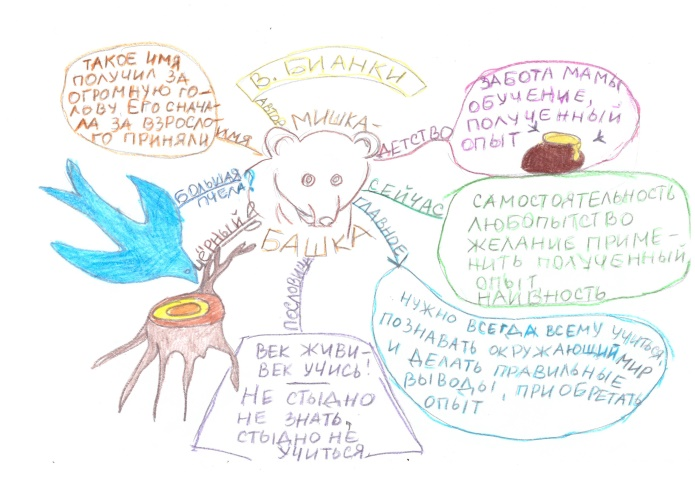 В. БИАНКИ
АВТОР
МИШКА-
БАШКА
ТАКОЕ ИМЯ
ПОЛУЧИЛ ЗА
ОГРОМНУЮ ГО-
ЛОВУ. ЕГО СНАЧА-
ЛА ЗА ВЗРОСЛО-
ГО ПРИНЯЛИ
ИМЯ
ДЕТСТВО
ЗАБОТА МАМЫ
ОБУЧЕНИЕ,
ПОЛУЧЕННЫЙ
ОПЫТ
БОЛЬШАЯ
ПЧЕЛА?
ЧЁРНЫЙ
СЕЙЧАС
САМОСТОЯТЕЛЬНОСТЬ
ЛЮБОПЫТСТВО
ЖЕЛАНИЕ ПРИМЕ-
НИТЬ ПОЛУЧЕННЫЙ
ОПЫТ
НАИВНОСТЬ
ГЛАВНОЕ
НУЖНО ВСЕГДА ВСЕМУ УЧИТЬСЯ,
ПОЗНАВАТЬ ОКРУЖАЮЩИЙ МИР,
И ДЕЛАТЬ ПРАВИЛЬНЫЕ
ВЫВОДЫ, ПРИОБРЕТАТЬ
ОПЫТ
ПОСЛОВИЦЫ
ВЕК ЖИВИ-
ВЕК УЧИСЬ!
НЕ СТЫДНО
НЕ ЗНАТЬ,
СТЫДНО НЕ
УЧИТЬСЯ